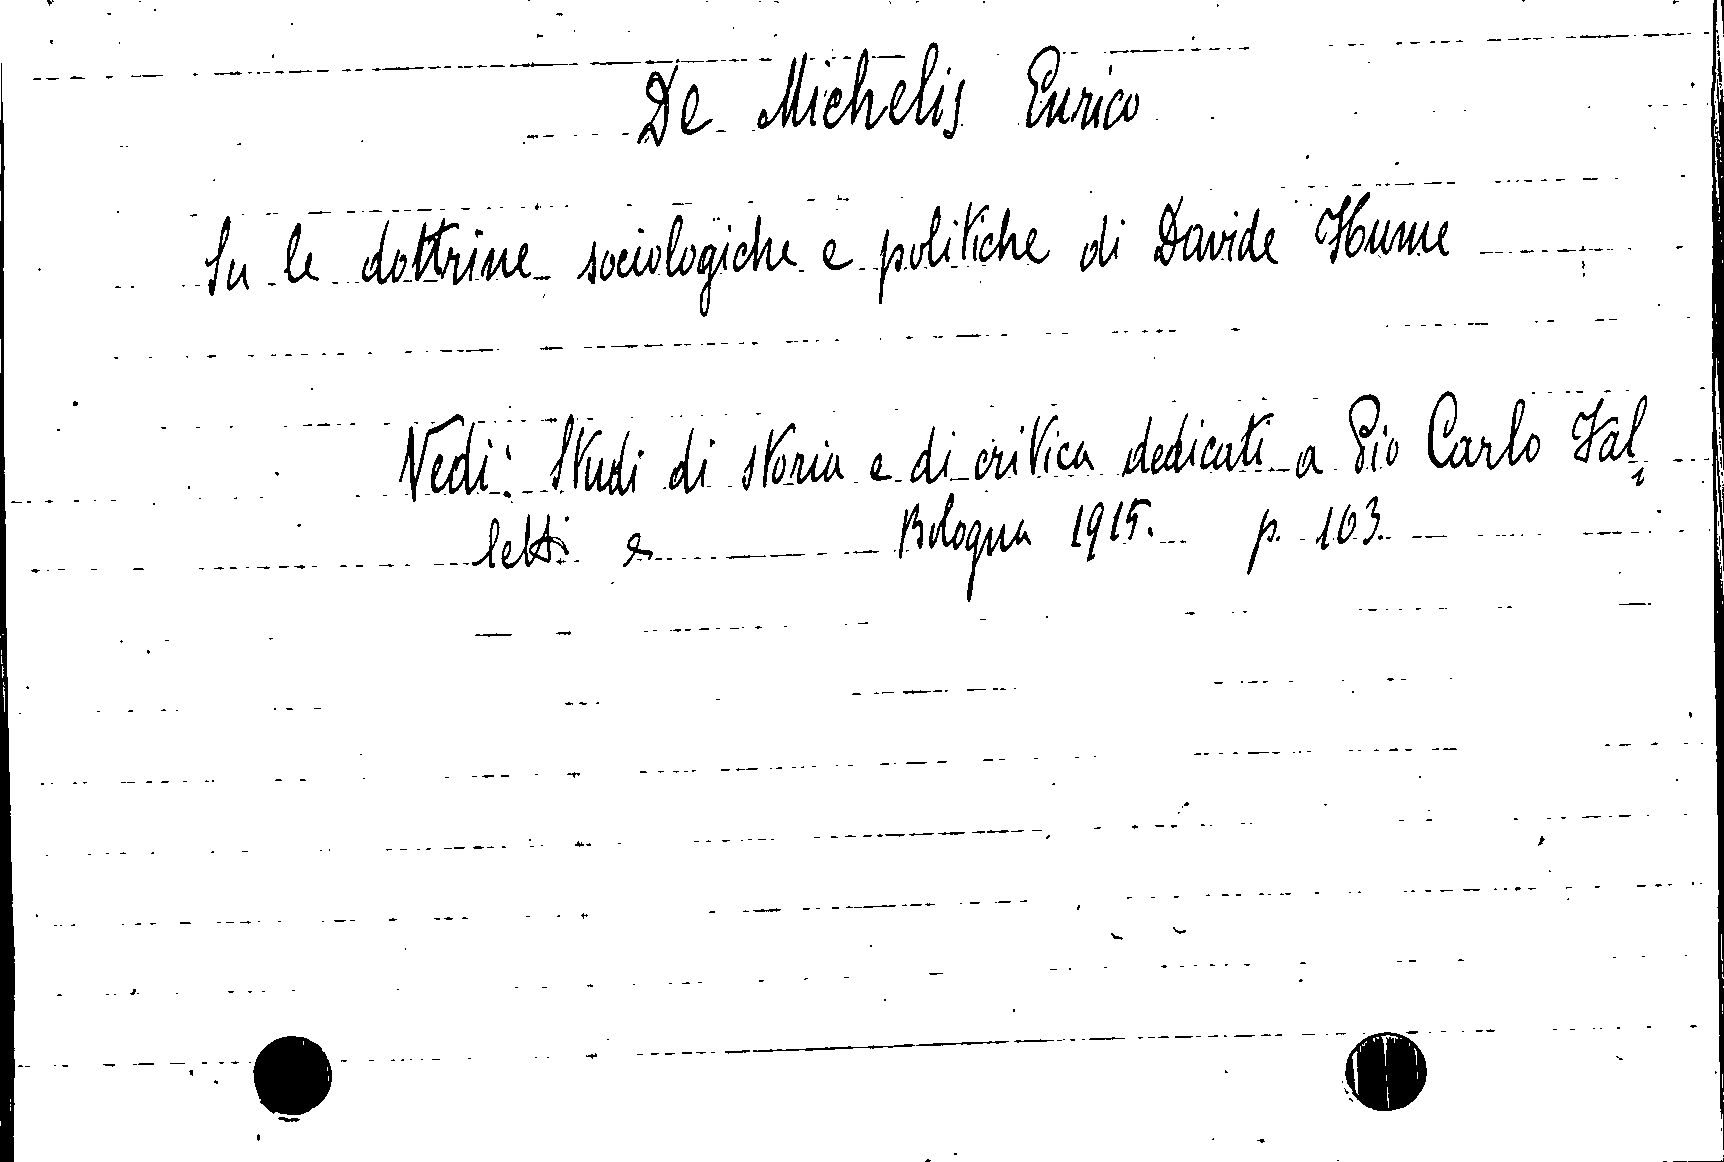 De Michelis Enrico
Su le dottrine sociologiche e politiche di Davide Hume
Vedi: Studi di storia e di critica dedicati a Pio Carlo Fal=
letti e Bologna 1915. p. 103.